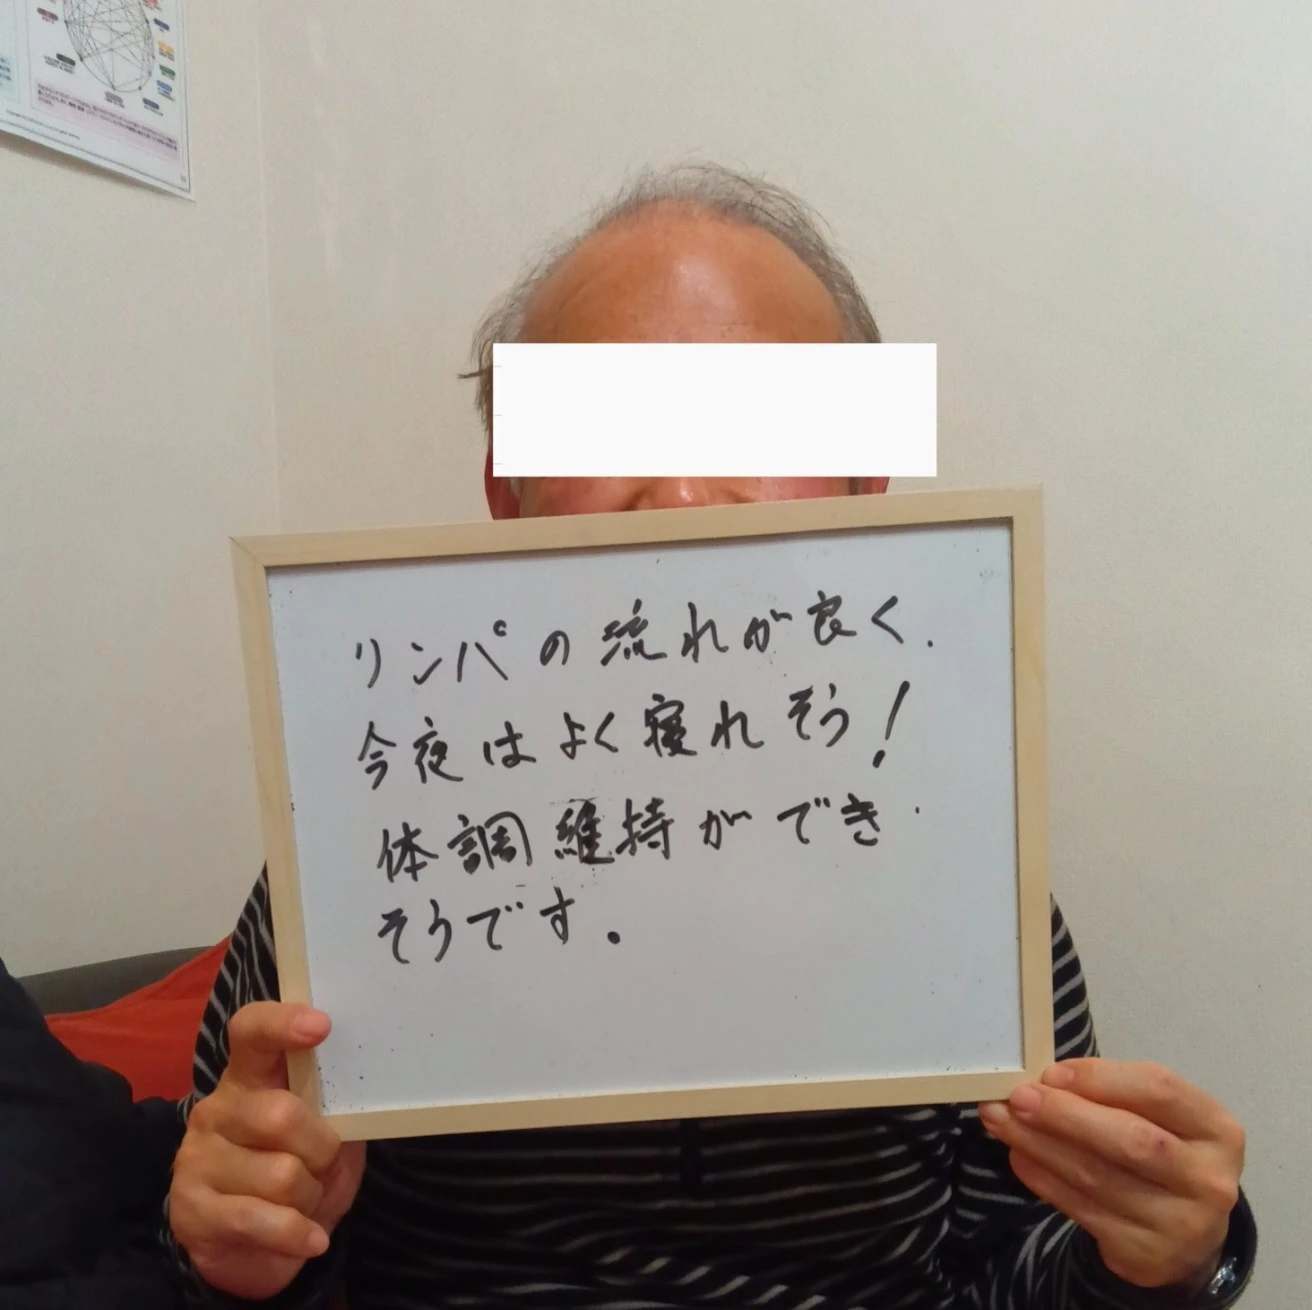 リンパの流れが良く.
今夜はよく寝れそう!
体調維持ができ
そうです.